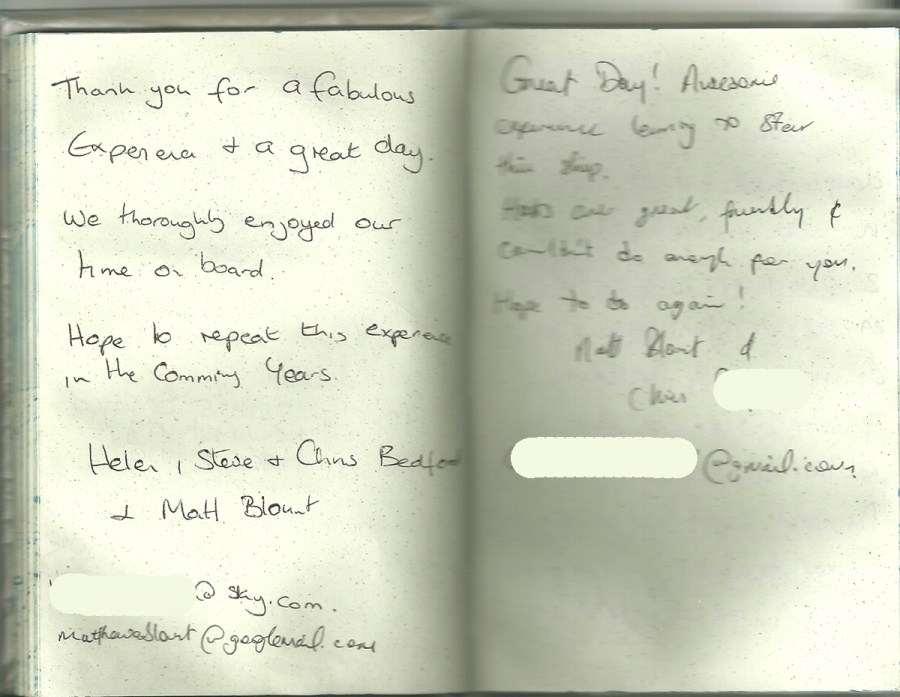 Thank you for a fabulous
Experience & a great day.
We thoroughly enjoyed our
time on board.
Hope to repeat this experience
in the Comming Years.
Helen, Steve & Chris Bedford
& Matt Blount
@sky.com.
@googlemail.com
Great Day! Awesome
experience learning to steer
this ship.
are great, friendly &
couldn't do enough for you.
Hope to do again!
Matt Blount &
Chris
@gmail.com